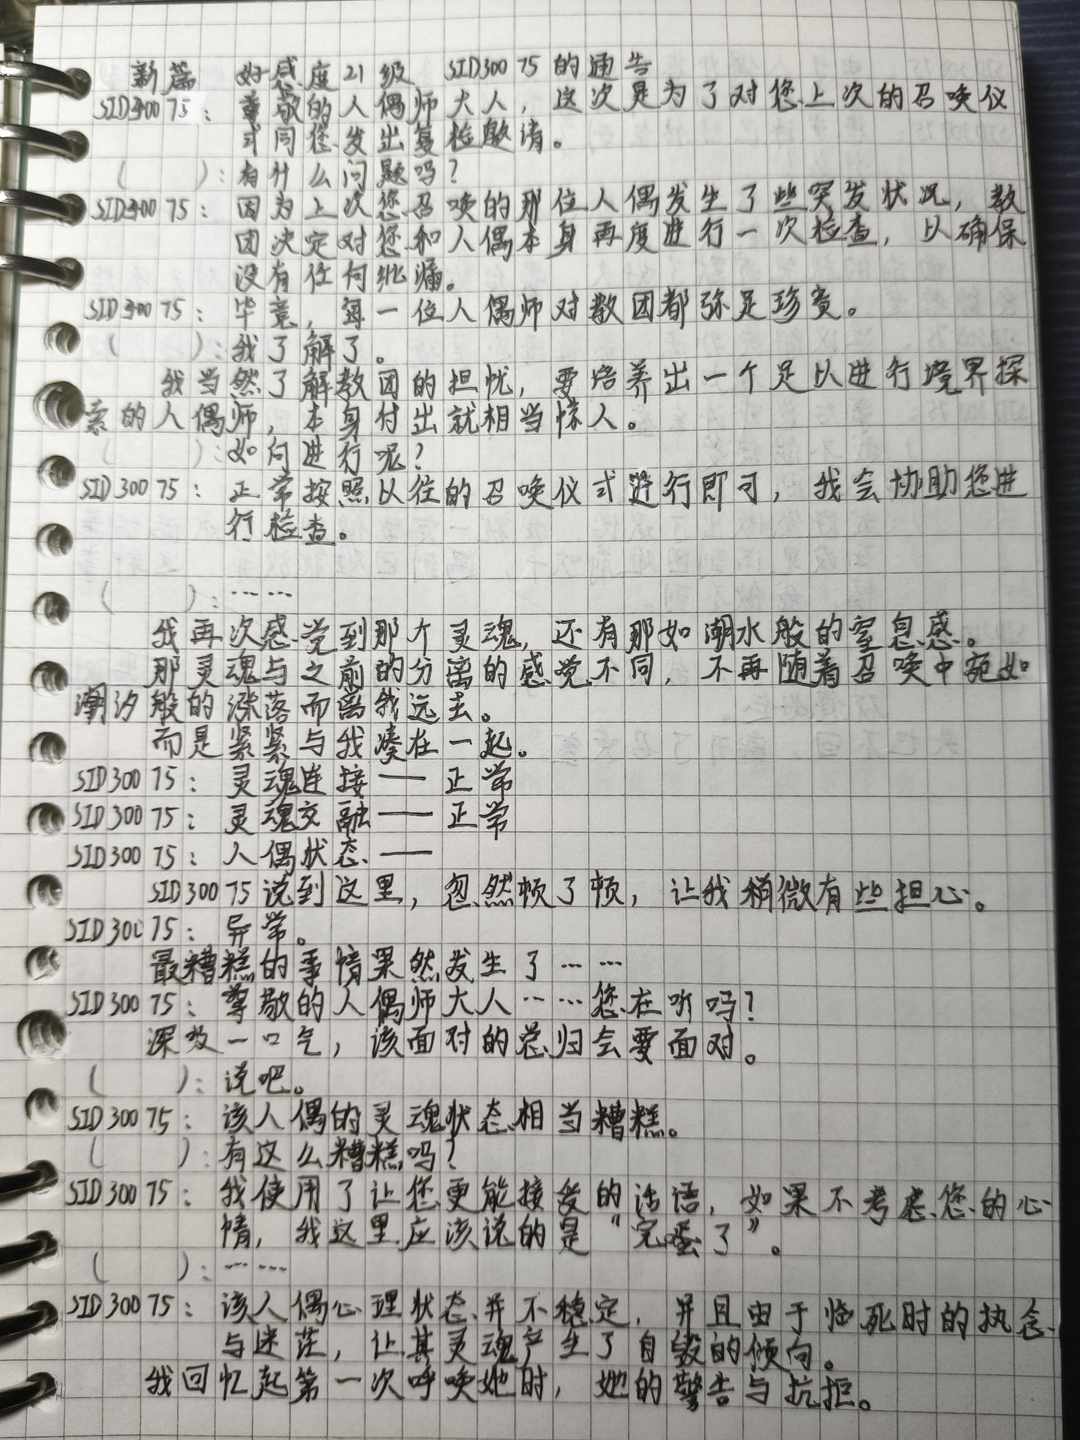 新篇 好感度21级 SID30075的通告
SID30075：尊敬的人偶师大人，这次是为了对您上次的召唤仪
式向您发出复检邀请。
（ ）：有什么问题吗？
SID30075：因为上次您召唤的那位人偶发生了些突发状况，教
团决定对您和人偶本身再度进行一次检查，以确保
没有任何纰漏。
SID30075：毕竟，每一位人偶师对教团都弥足珍贵。
（ ）：我了解了。
我当然了解教团的担忧，要培养出一个足以进行境界探
索的人偶师，本身付出就相当惊人。
（ ）：如何进行呢？
SID30075：正常按照以往的召唤仪式进行即可，我会协助您进
行检查。
（ ）：……
我再次感觉到那个灵魂，还有那如潮水般的窒息感。
那灵魂与之前的分离的感觉不同，不再随着召唤中宛如
潮汐般的涨落而离我远去。
而是紧紧与我凑在一起。
SID30075：灵魂连接——正常
SID30075：灵魂交融——正常
SID30075：人偶状态——
SID30075说到这里，忽然顿了顿，让我稍微有些担心。
SID30075：异常。
最糟糕的事情果然发生了……
SID30075：尊敬的人偶师大人……您在听吗？
深吸一口气，该面对的总归会要面对。
（ ）：说吧。
SID30075：该人偶的灵魂状态相当糟糕。
（ ）：有这么糟糕吗？
SID30075：我使用了让您更能接受的话语，如果不考虑您的心
情，我这里应该说的是“完蛋了”。
（ ）：……
SID30075：该人偶心理状态并不稳定，并且由于临死时的执念
与迷茫，让其灵魂产生了自毁的倾向。
我回忆起第一次呼唤她时，她的警告与抗拒。